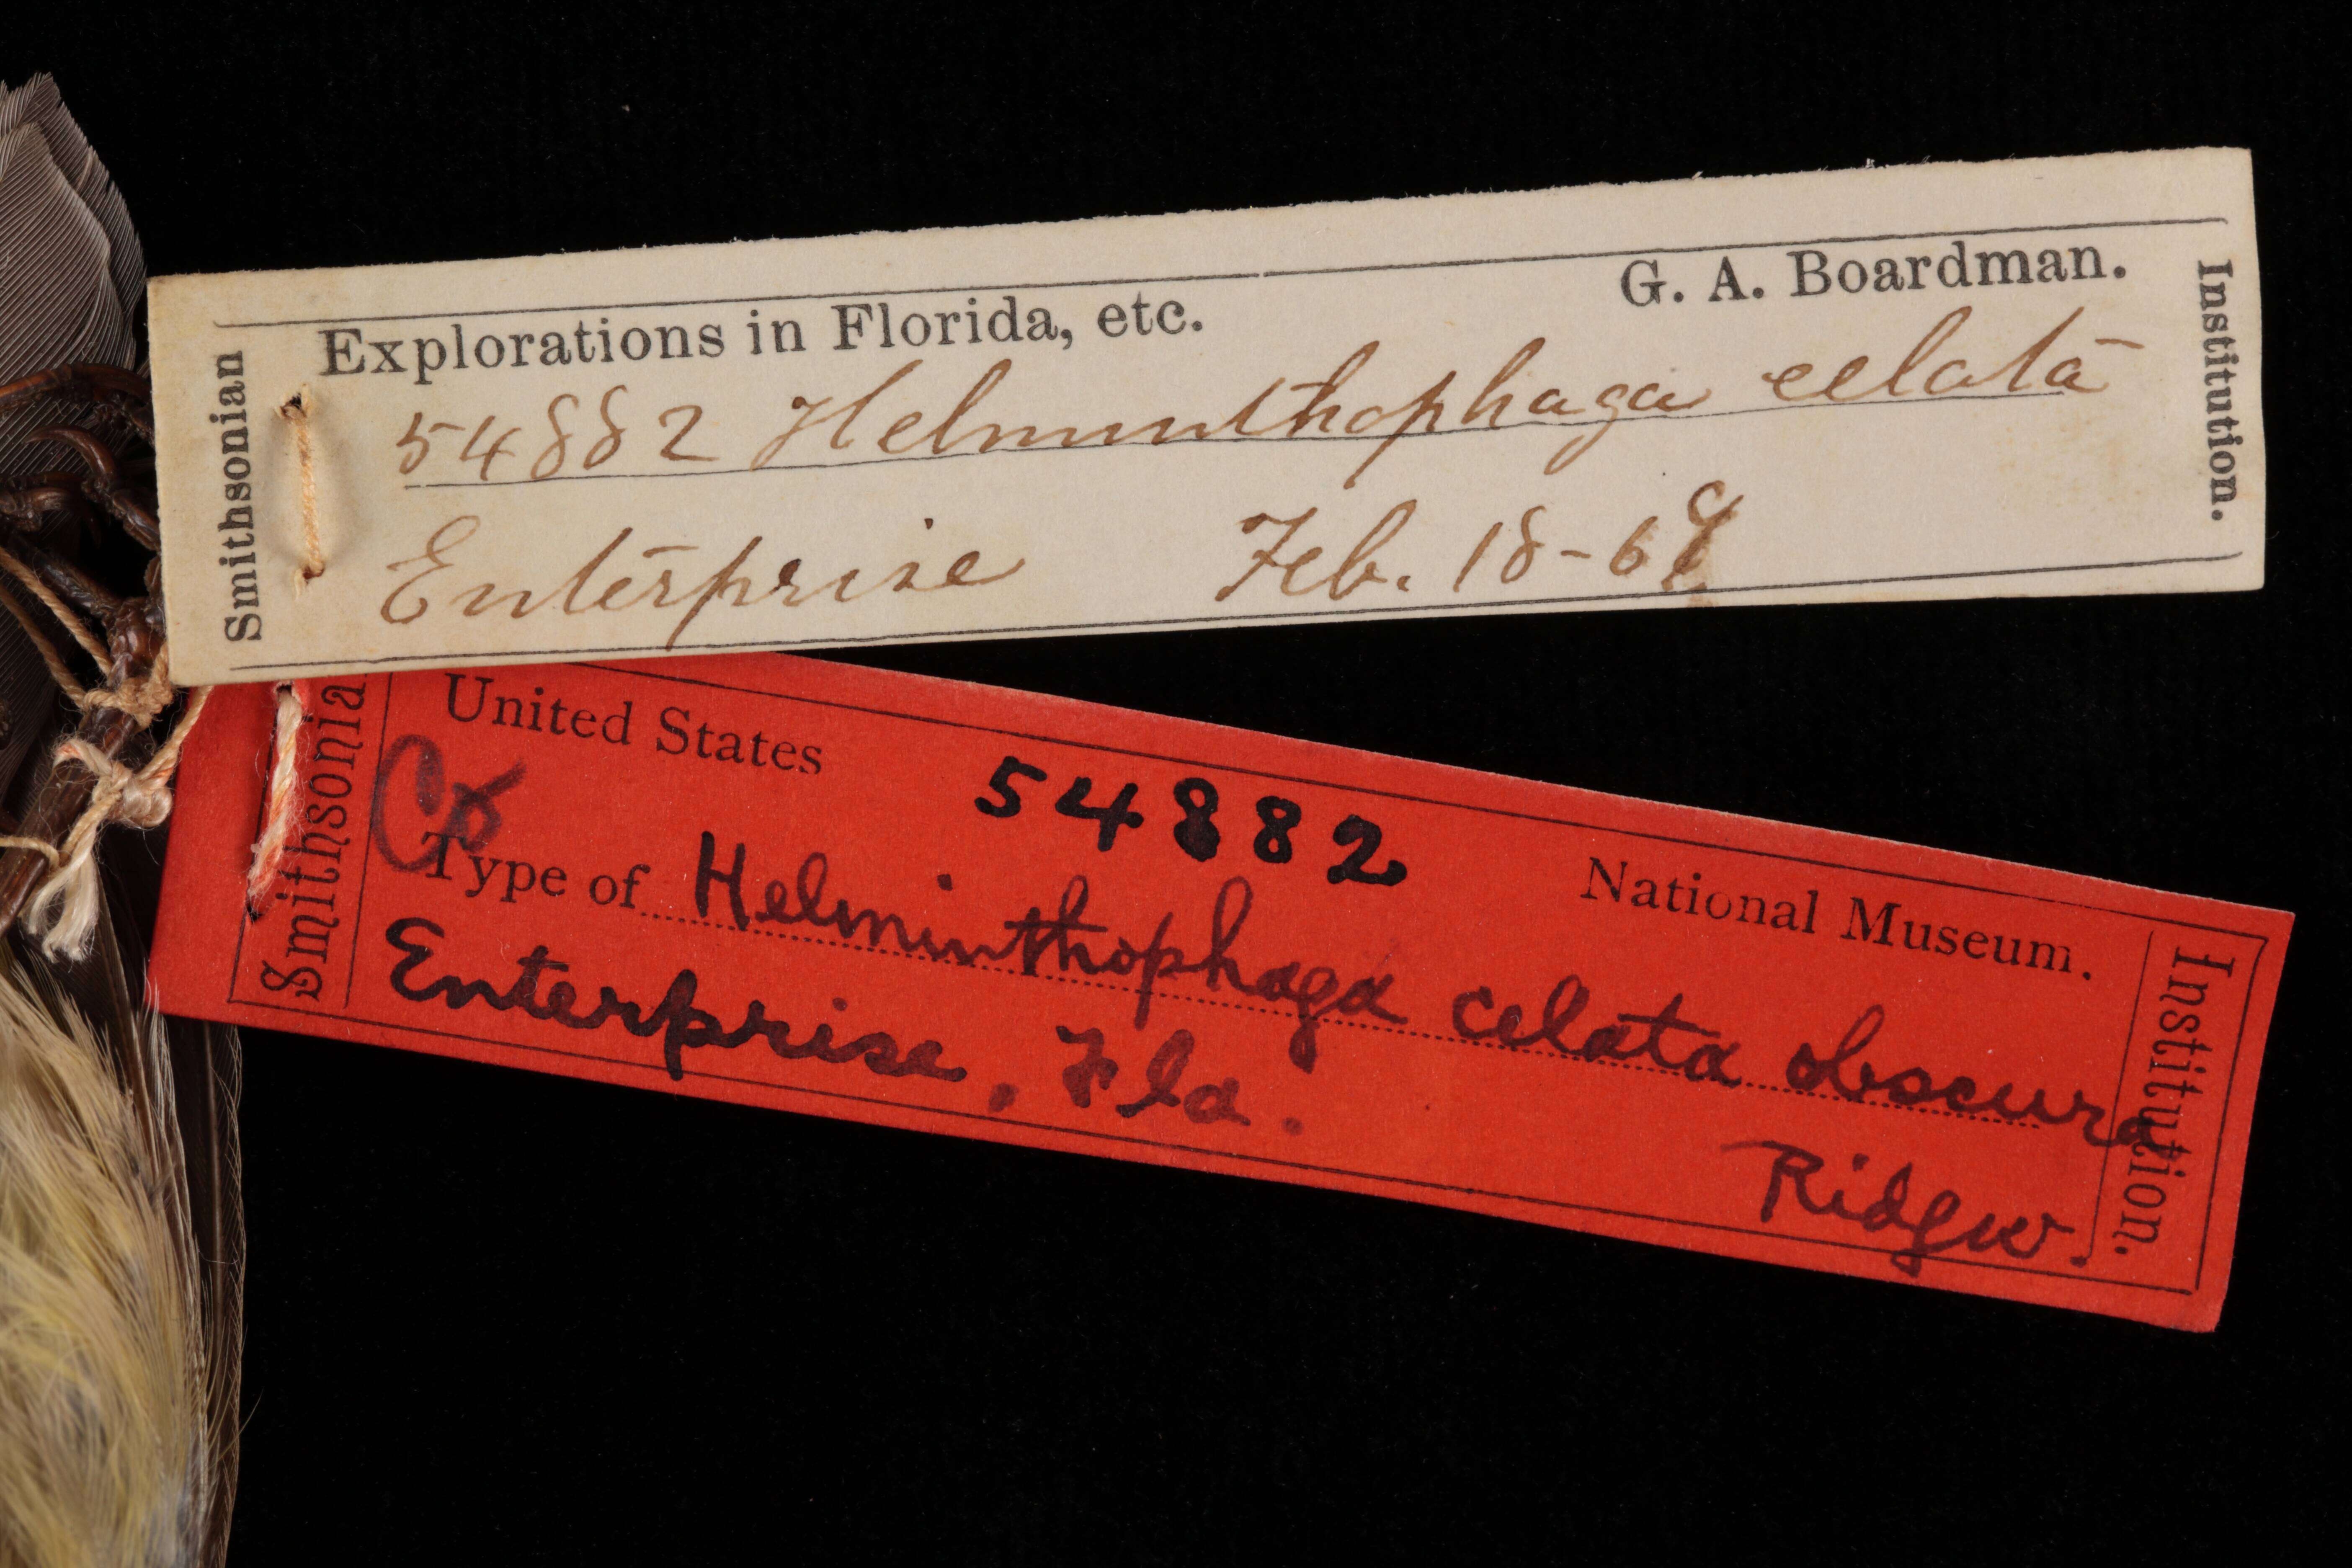 Smithsonian
Explorations in Florida, etc. G. A. Boardman.
54882 Helminthophaga celata
Enterprise Feb. 18-69
Institution.
Smithsonian
United States 54882 National Museum.
Co
Type of Helminthophaga celata obscura
Enterprise, Fla. Ridgw.
Institution.